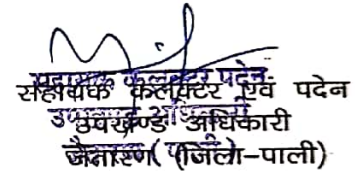 सहायक कलेक्टर एवं पदेन
उपखण्ड अधिकारी
जैतारण (जिला-पाली)